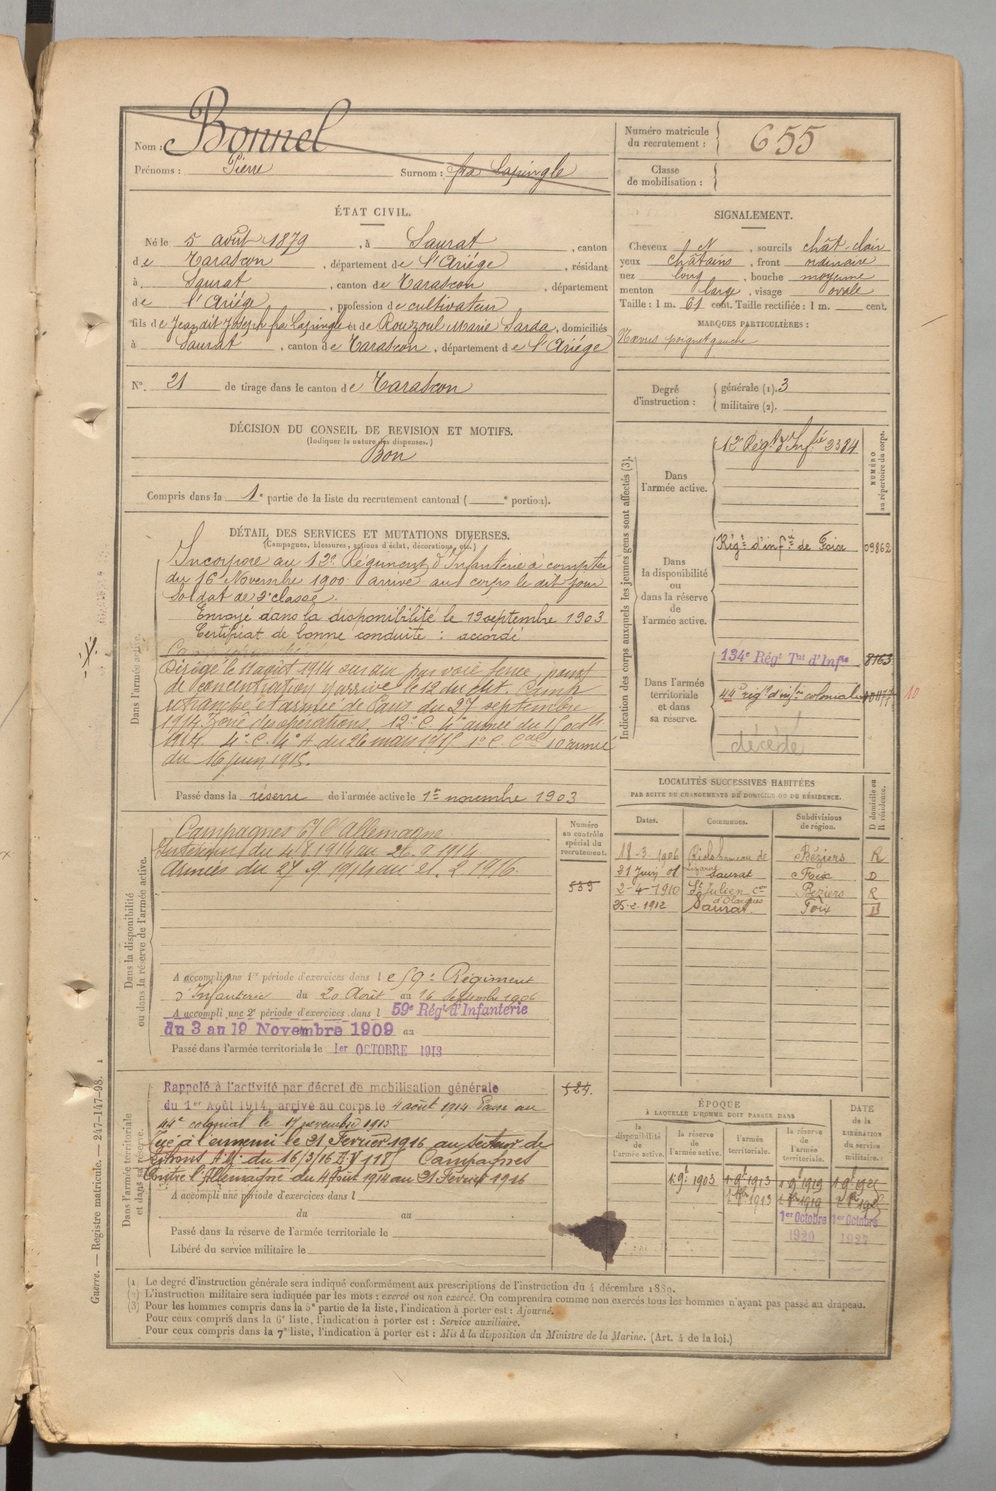 Nom : Bonnel
Prénoms : Pierre Surnom : fra Lapingle
Numéro matricule du recrutement : 655
Classe de mobilisation :
ÉTAT CIVIL.
Né le 5 août 1879, à Saurat, canton
de Tarascon, département de l'Ariége, résidant
à Saurat, canton de Tarascon, département
de l'Ariége, profession de cultivateur
fils de Jean dit Joseph fra Lapingle et de Rouzoul Marie Sarda, domiciliés
à Saurat, canton de Tarascon, département de l'Ariége
N° 21 de tirage dans le canton de Tarascon
SIGNALEMENT.
Cheveux N, sourcils chât-clair
yeux châtains, front ordinaire
nez long, bouche moyenne
menton large, visage ovale
Taille : 1 m. 61 cent. Taille rectifiée : 1 m. cent.
MARQUES PARTICULIÈRES :
Nœvus poignet gauche
Degré d'instruction : générale (1). 3
militaire (2).
DÉCISION DU CONSEIL DE REVISION ET MOTIFS.
(Indiquer la nature des dispenses.)
Bon
Compris dans la 1e partie de la liste du recrutement cantonal ( e portion).
DÉTAIL DES SERVICES ET MUTATIONS DIVERSES.
(Campagnes, blessures, actions d'éclat, décorations, etc.)
Dans l'armée active.
Incorporé au 12e Régiment d'Infanterie à compter
du 16 Novembre 1900 arrivé au corps le dit jour
soldat de 2e classe.
Envoyé dans la disponibilité le 19 septembre 1903
Certificat de bonne conduite : accordé
Dirigé le 11 août 1914 sur par voie ferrée, point
de concentration y arrive le 12 du dit. Camp
retranché et armée de Paris du 27 septembre
1914. Zone des opérations. 12e C. 4e armée du 15 octb
1914. 4e C. 4e A du 26 mars 1915 1er C. Cal 10 armée
du 16 juin 1915.
Passé dans la réserve de l'armée active le 1er novembre 1903
Indication des corps auxquels les jeunes gens sont affectés (3).
NUMÉRO au répertoire du corps.
Dans l'armée active. 12e Régt d'Infie 2384
Dans la disponibilité ou dans la réserve de l'armée active. Régt d'infie de Foix 09862
Dans l'armée territoriale et dans sa réserve. 134e Régt Tal d'Infie 8163
44e régt d'infie coloniale 10
décédé
LOCALITÉS SUCCESSIVES HABITÉES
PAR SUITE DE CHANGEMENTS DE DOMICILE OU DE RÉSIDENCE.
Dates. Communes. Subdivisions de région. D domicile ou R résidence.
18-3-1906 Béziers R
21 Juin 08 Saurat Foix D
2-4-1910 St Julien cne d'Olargues Béziers R
25-2-1912 Saurat Foix D
Dans la disponibilité ou dans la réserve de l'armée active.
Numéro au contrôle spécial du recrutement.
555
Campagnes C/ l'Allemagne
Intérieur du 4.8.1914 au 26.9.1914
Armées du 27.9.1914 au 21.2.1916
A accompli une 1re période d'exercices dans l e 59e Régiment
d'Infanterie du 20 Août au 16 septembre 1906
A accompli une 2e période d'exercices dans l 59e Régt d'Infanterie
du 3 au 19 Novembre 1909 au
Passé dans l'armée territoriale le 1er OCTOBRE 1913
Dans l'armée territoriale et dans sa réserve.
524
Rappelé à l'activité par décret de mobilisation générale
du 1er Août 1914, arrivé au corps le 4 août 1914. Passé au
44e colonial le 17 novembre 1915
Tué à l'ennemi le 21 Février 1916 au Secteur de
Lihons A.M. du 16/3/16 Campagnes
Contre l'Allemagne du 4 Août 1914 au 21 Février 1916
A accompli une période d'exercices dans l
du au
Passé dans la réserve de l'armée territoriale le
Libéré du service militaire le
ÉPOQUE
À LAQUELLE L'HOMME DOIT PASSER DANS
la disponibilité de l'armée active. la réserve de l'armée active. l'armée territoriale. la réserve de l'armée territoriale. DATE DE LA LIBÉRATION du service militaire.
1 9e 1903 1 9e 1913 1 9e 1919
1er Octobre 1920 1er Octobre
(1) Le degré d'instruction générale sera indiqué conformément aux prescriptions de l'instruction du 4 décembre 1889.
(2) L'instruction militaire sera indiquée par les mots : exercé ou non exercé. On comprendra comme non exercés tous les hommes n'ayant pas passé au drapeau.
(3) Pour les hommes compris dans la 5e partie de la liste, l'indication à porter est : Ajourné.
Pour ceux compris dans la 6e liste, l'indication à porter est : Service auxiliaire.
Pour ceux compris dans la 7e liste, l'indication à porter est : Mis à la disposition du Ministre de la Marine. (Art. 4 de la loi.)
Guerre. — Registre matricule. — 247-147-98.